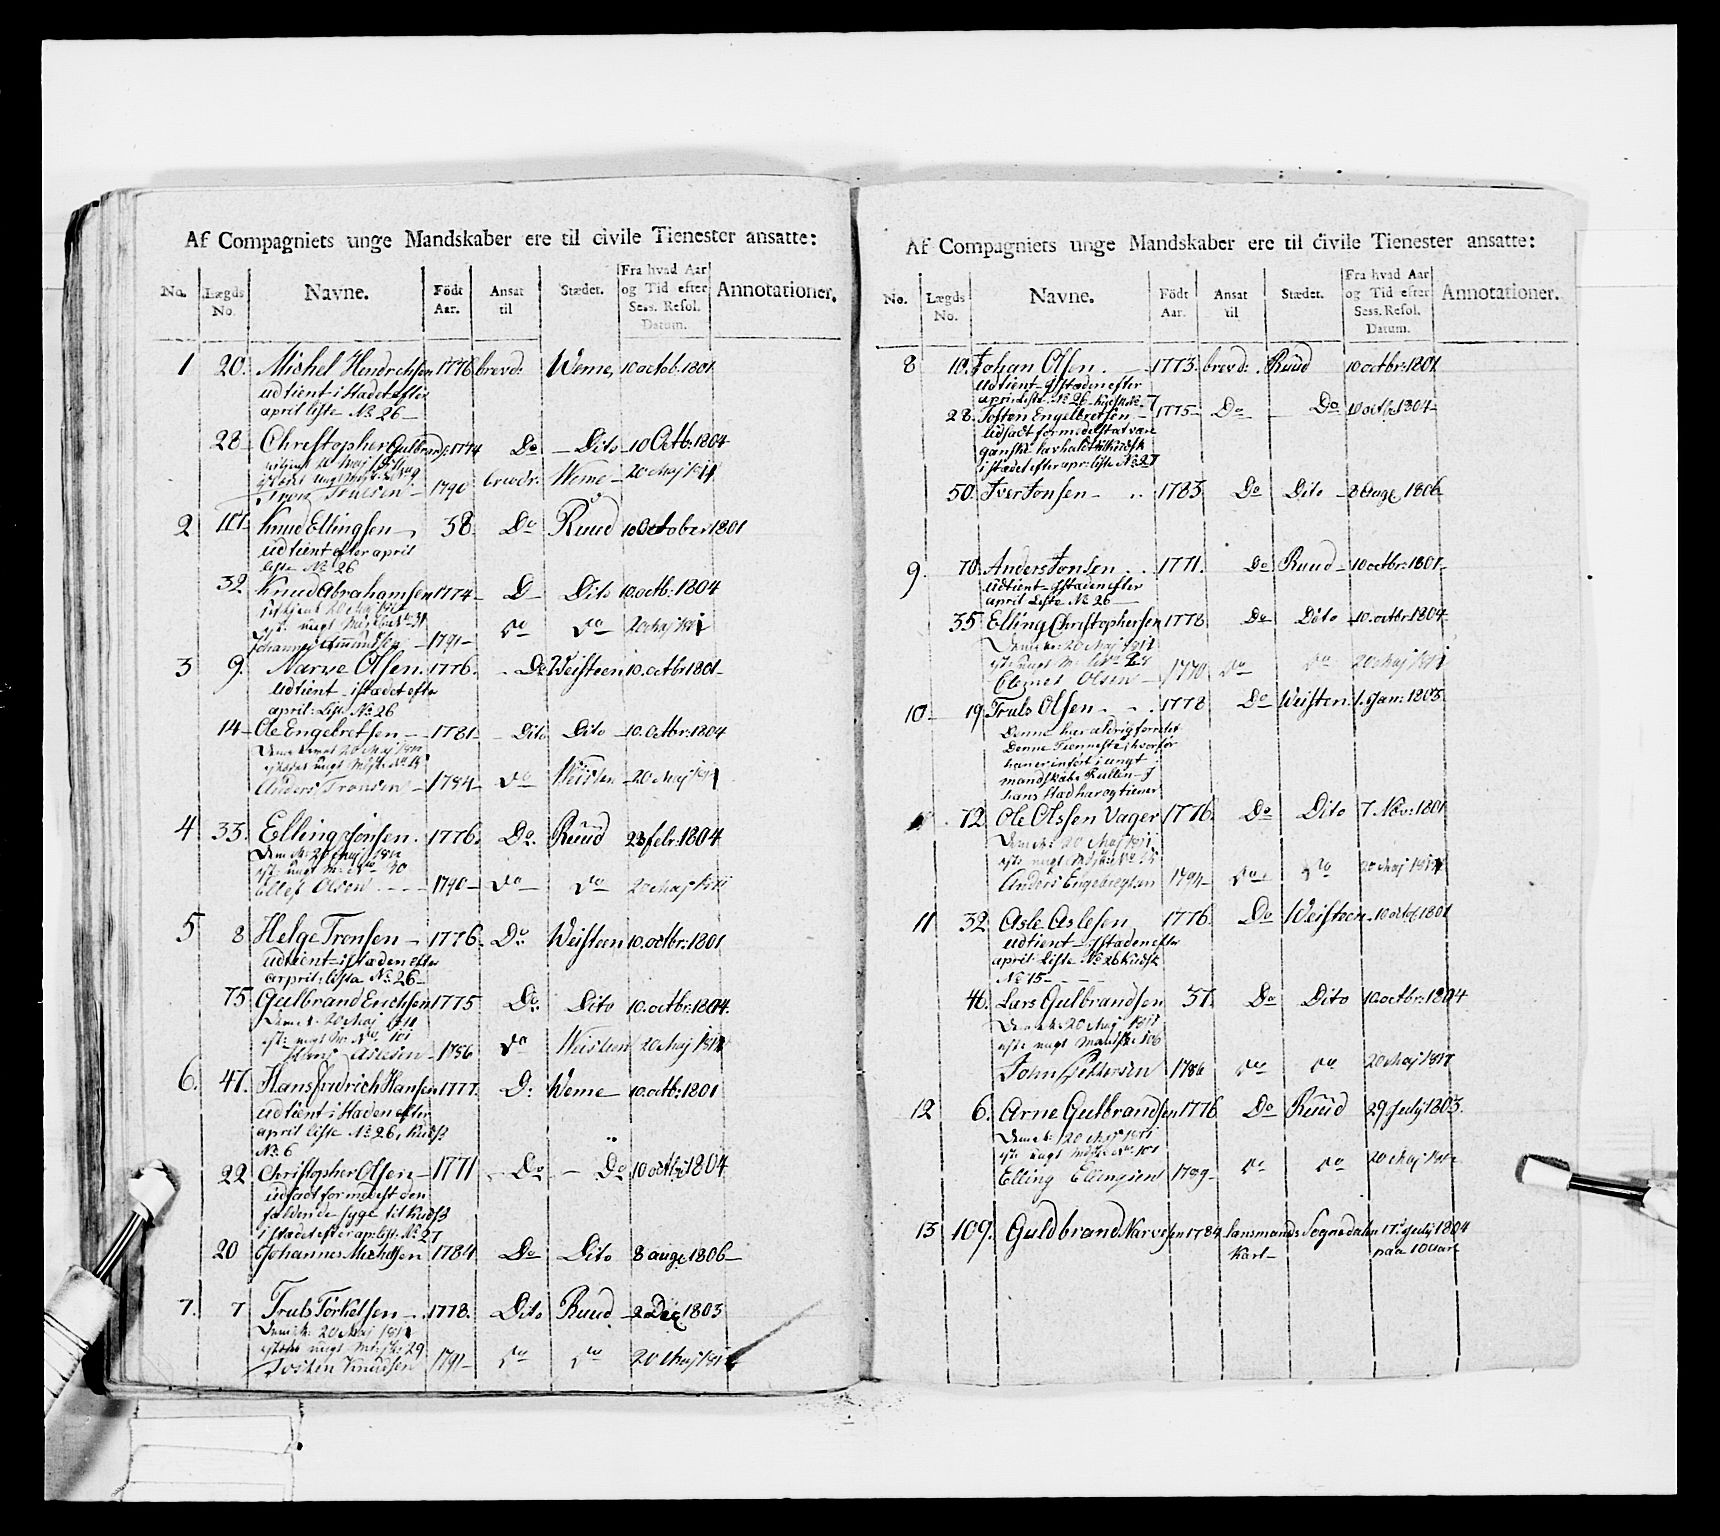 Af Compagniets unge Mandskaber ere til civile Tienester ansatte:
No. Lægds No. Navne. Födt Aar. Ansat til Stædet. Fra hvad Aar og Tid efter Sess. Resol. Datum. Annotationer.
1 20. Michel Hendrichsen 1776 brevd: Weme, 10 octob. 1801
udtient i stadet efter
april liste No 26
28 Christopher Gulbrands: 1774 Do Dito 10 Octb: 1804
1790 brevdr: Weme 20 Maj 1811
2 101 Knud Ellingsen 38. Do Ruud 10 October 1801
udtient efter april
liste No 26
32 Knud Abrahamsen 1774 D Dito 10. octb: 1804
Johannes Amundsen 1791 Do Do 20 Maj 1811
3 9. Narve Olsen. 1776. Do Weisteen 10. octbr 1801
Udtient i stædet efter
april: Liste No 26
14 Ole Engebretsen 1781. Dito Dito 10. octbr: 1804
Anders Tronsen 1784 Do Weisten 20 Maj 1811
4 33. Elling Jonsen. 1776. Do. Ruud 23 febr: 1804
Ellef Olsen 1790 Do Do 20 Maj 1811
5 8 Helge Tronsen 1776. Do. Weisteen 10. octbr: 1801
udtient i staden efter
april: lista No 26
75. Gulbrand Erichsen 1775 Do. Dito 10. octbr: 1804.
Hans Aslesen 1786 Do Weisteen 20 Maj 1811
6. 47. Hans fridrich Hansen 1777. D: Weme 10. octb: 1801
udtient i staden efter
april liste No 26,
No 6
22 Christopher Olsen 1771 Do Do 10 octb: 1804
udsadt formedelst den
faldende syge til
i stædet efter apr: list: No 27
20 Johannes Michelsen 1784 Do Dito 8 aug: 1806
7. 7 Truls Torkelsen 1778. Dito Ruud 2 Dec 1803
Denne k: 20 Maj 1811
Tosten Knudsen 1791 Do Do 20 Maj 1811
Af Compagniets unge Mandskaber ere til civile Tienester ansatte:
No. Lægds No. Navne. Födt Aar. Ansat til Stædet. Fra hvad Aar og Tid efter Sess. Resol. Datum. Annotationer.
8 10. Johan Olsen. 1773. brevd: Ruud 10 octbr: 1801
Udtient i staden efter
april liste No 26
28. Tosten Engelbretsen 1775 Do Do 10 octb 1804
Udsadt formedelst at være
i stædet efter apr: liste No 27
50. Iver Jonsen 1783 Do Dito 8 Aug: 1806
9. 70. Anders Jonsen 1771. Do Ruud 10 octbr: 1801
Udtient i staden efter
april Liste No 26
35 Elling Christophersen 1778 Do Dito 10. octbr 1804
Clemet Olsen 1790 Do Do 20 Maj 1811
10 19. Truls Olsen 1778 Do Weisten 1. Jan: 1803
Denne har aldrig forrettet
Denne Tienneste hvorfor
han er infort i ungt
mandskabs Rullen
hans stad har og tiener
72 Ole Olssen Vager 1776. Do Dito 7. Nov: 1801
Anders Engebregtsen 1794 Do Do 20 Maj 1811
11 32. Asle Aslesen 1776. Do Weisteen 10 octb. 1801
udtient i staden efter
april: Liste No 26
No 15
46. Lars Gulbrandsen 37. Do Dito 10 octbr: 1804
Denne k: 20 Maj 1811
John Pettersen 1786 Do Do 20 Maj 1811
12 6. Arne Gulbrandsen 1776 Do Ruud 29 July 1803.
Elling Ellingsen 1789 Do Do 20 Maj 1811
13 109. Guldbrand Narvesen 1784 lansmands Sognedalen 17. July 1804
Karl paa 10 aar